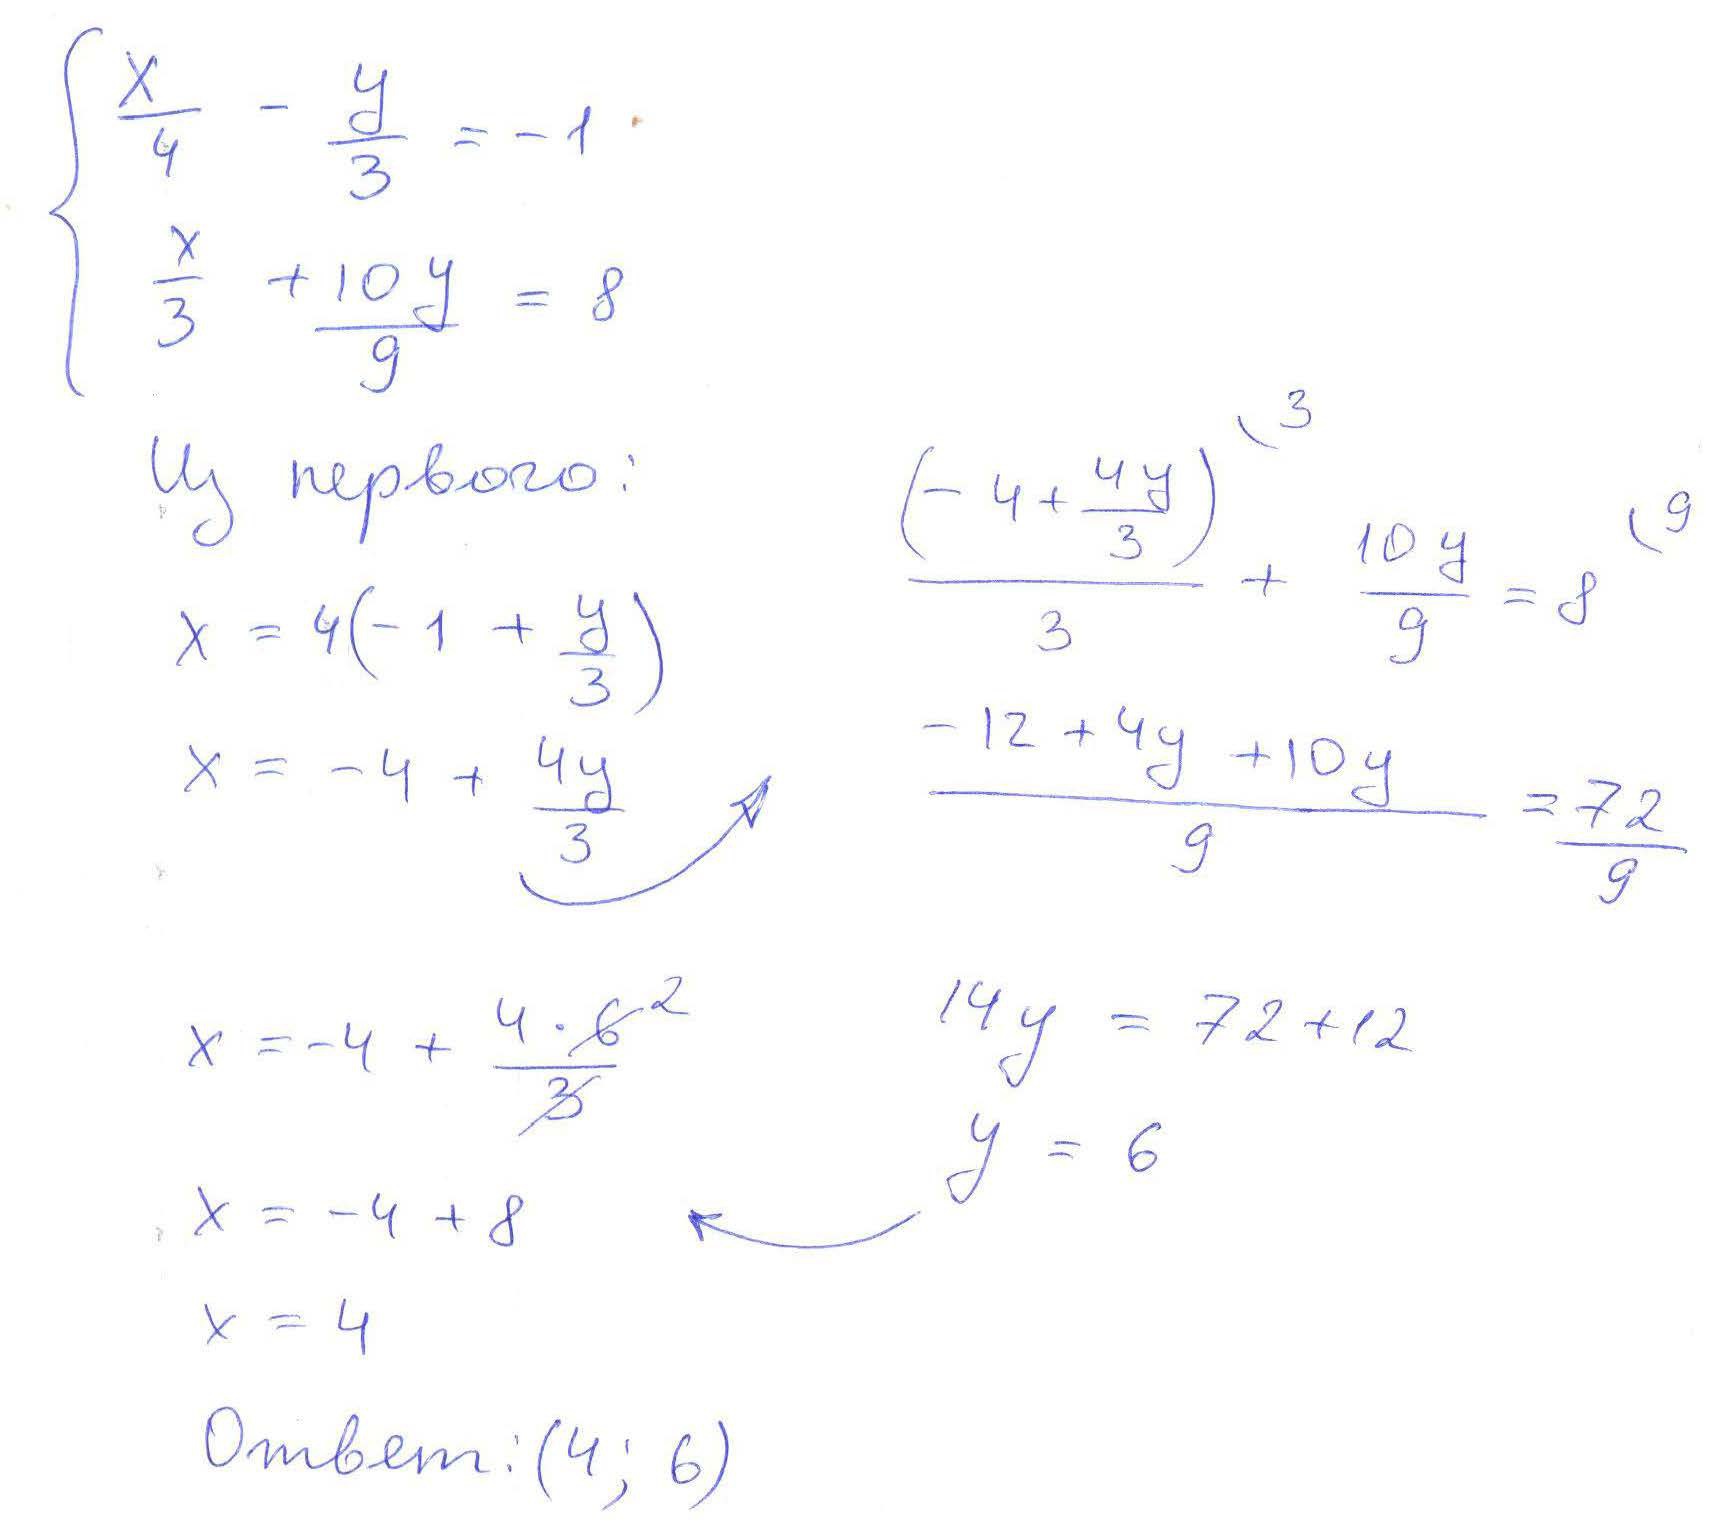 x/4 - y/3 = -1
x/3 + 10y/9 = 8
Из первого:
x = 4(-1 + y/3)
x = -4 + 4y/3
(-4 + 4y/3)\3 / 3 + 10y/9 = 8\9
(-12 + 4y + 10y)/9 = 72/9
14y = 72 + 12
y = 6
x = -4 + 4·6²/3
x = -4 + 8
x = 4
Ответ: (4; 6)